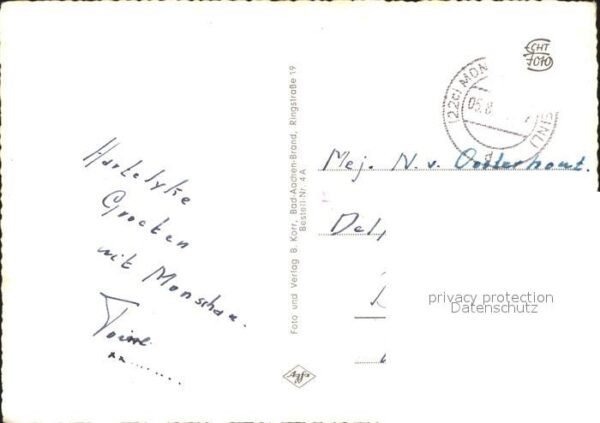 Hartelyke
Groeten
uit Monschau.
Toine
xx........
Foto und Verlag B. Korr, Bad-Aachen-Brand, Ringstraße 19
Bestell-Nr. 4 A
Agfa
ECHT
FOTO
(22c) MON
05.8.
Mej. N. v. Oosterhout.
privacy protection
Datenschutz